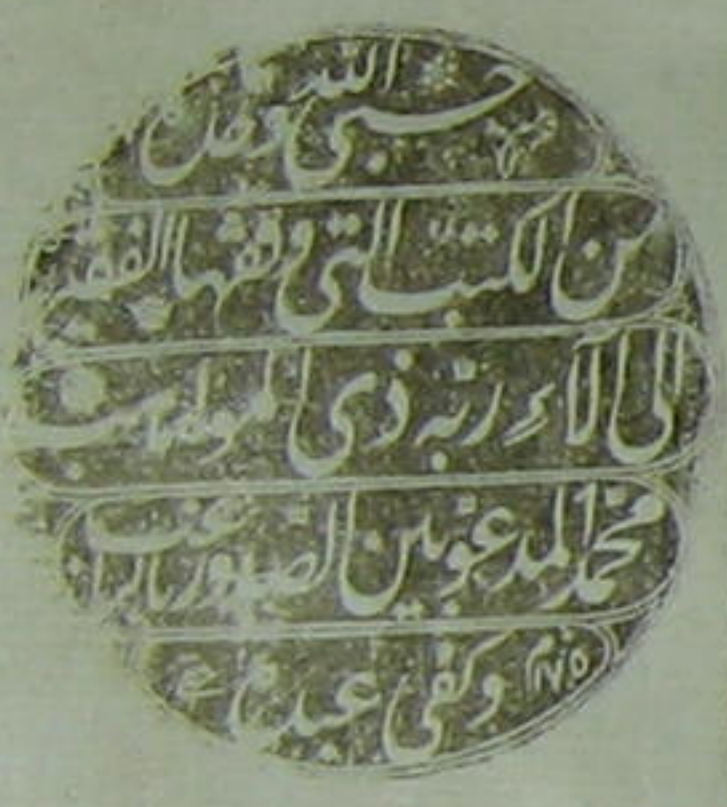 حسبي الله
من الكتب التي وقفها الفقير
الى آلاء ربه ذي المواهب
محمد المدعو بين الصدور بالراغب
وكفى عبده